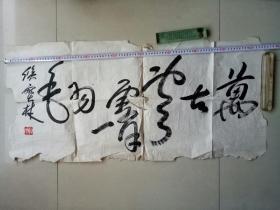 萬古雲霄一羽毛
侯宝林